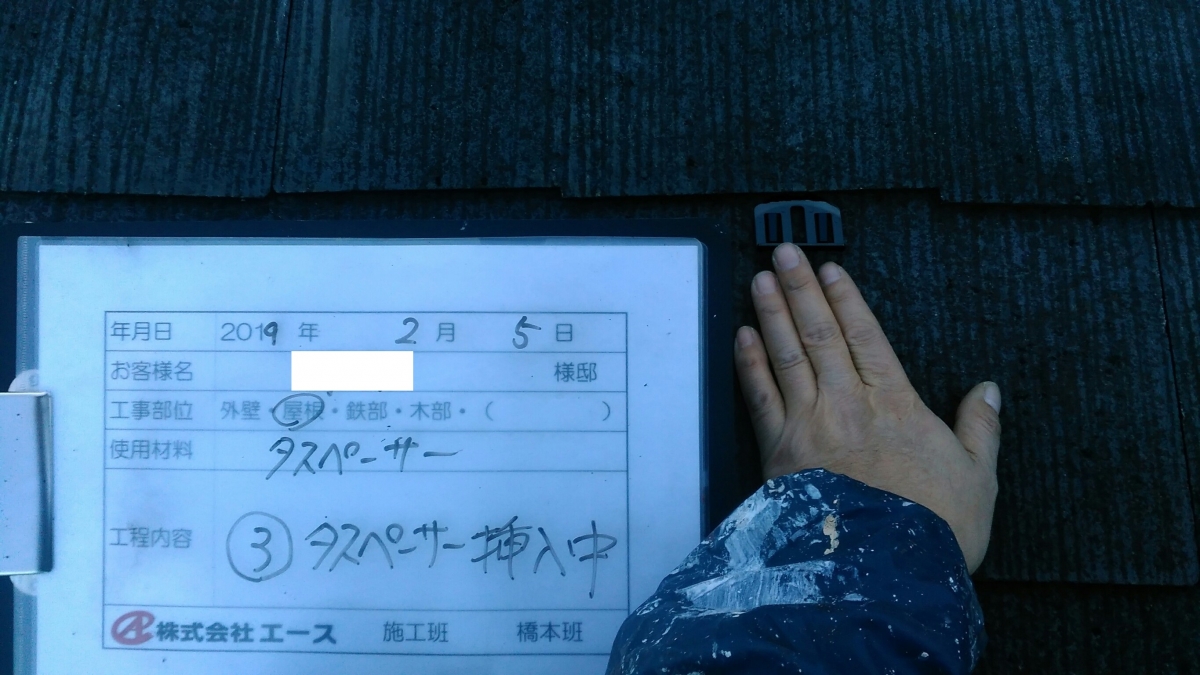 年月日 2019 年 2 月 5 日
お客様名 様邸
工事部位 外壁・屋根・鉄部・木部・（ ）
使用材料 タスペーサー
工程内容 ③ タスペーサー挿入中
株式会社 エース 施工班 橋本班